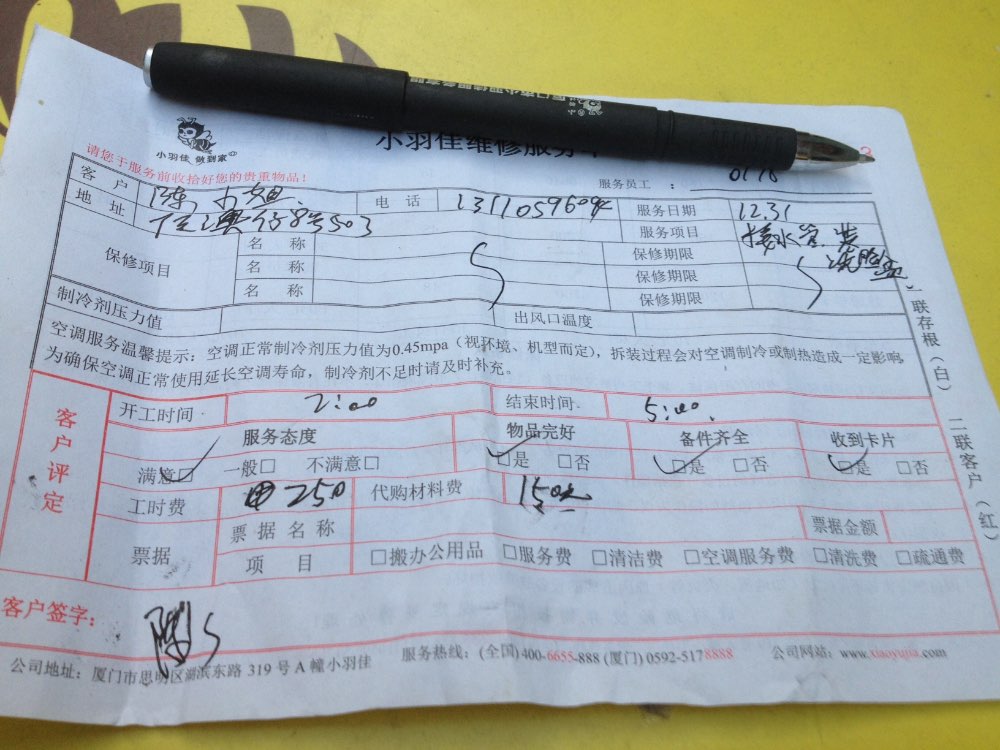 小羽佳 做到家
小羽佳维修服务单
请您于服务前收拾好您的贵重物品！
服务员工 ：
客 户 陈小姐 电 话 服务日期 12.31
地 址 8号503 服务项目 接水管、装
洗脸盆
保修项目 名 称 保修期限
名 称 保修期限
名 称 保修期限
制冷剂压力值 出风口温度
空调服务温馨提示：空调正常制冷剂压力值为0.45mpa（视环境、机型而定），拆装过程会对空调制冷或制热造成一定影响，
为确保空调正常使用延长空调寿命，制冷剂不足时请及时补充。
一联存根（白） 二联客户（红）
客户评定
开工时间 2:00 结束时间 5:00
服务态度 物品完好 备件齐全 收到卡片
满意□ 一般□ 不满意□ □是 □否 □是 □否 □是 □否
工时费 250 代购材料费 150元
票据 票据名称 票据金额
项 目 □搬办公用品 □服务费 □清洁费 □空调服务费 □清洗费 □疏通费
客户签字： 陈
公司地址：厦门市思明区湖滨东路 319 号 A 幢小羽佳 服务热线：(全国)400-6655-888 (厦门) 0592-5178888 公司网站：www.xiaoyujia.com